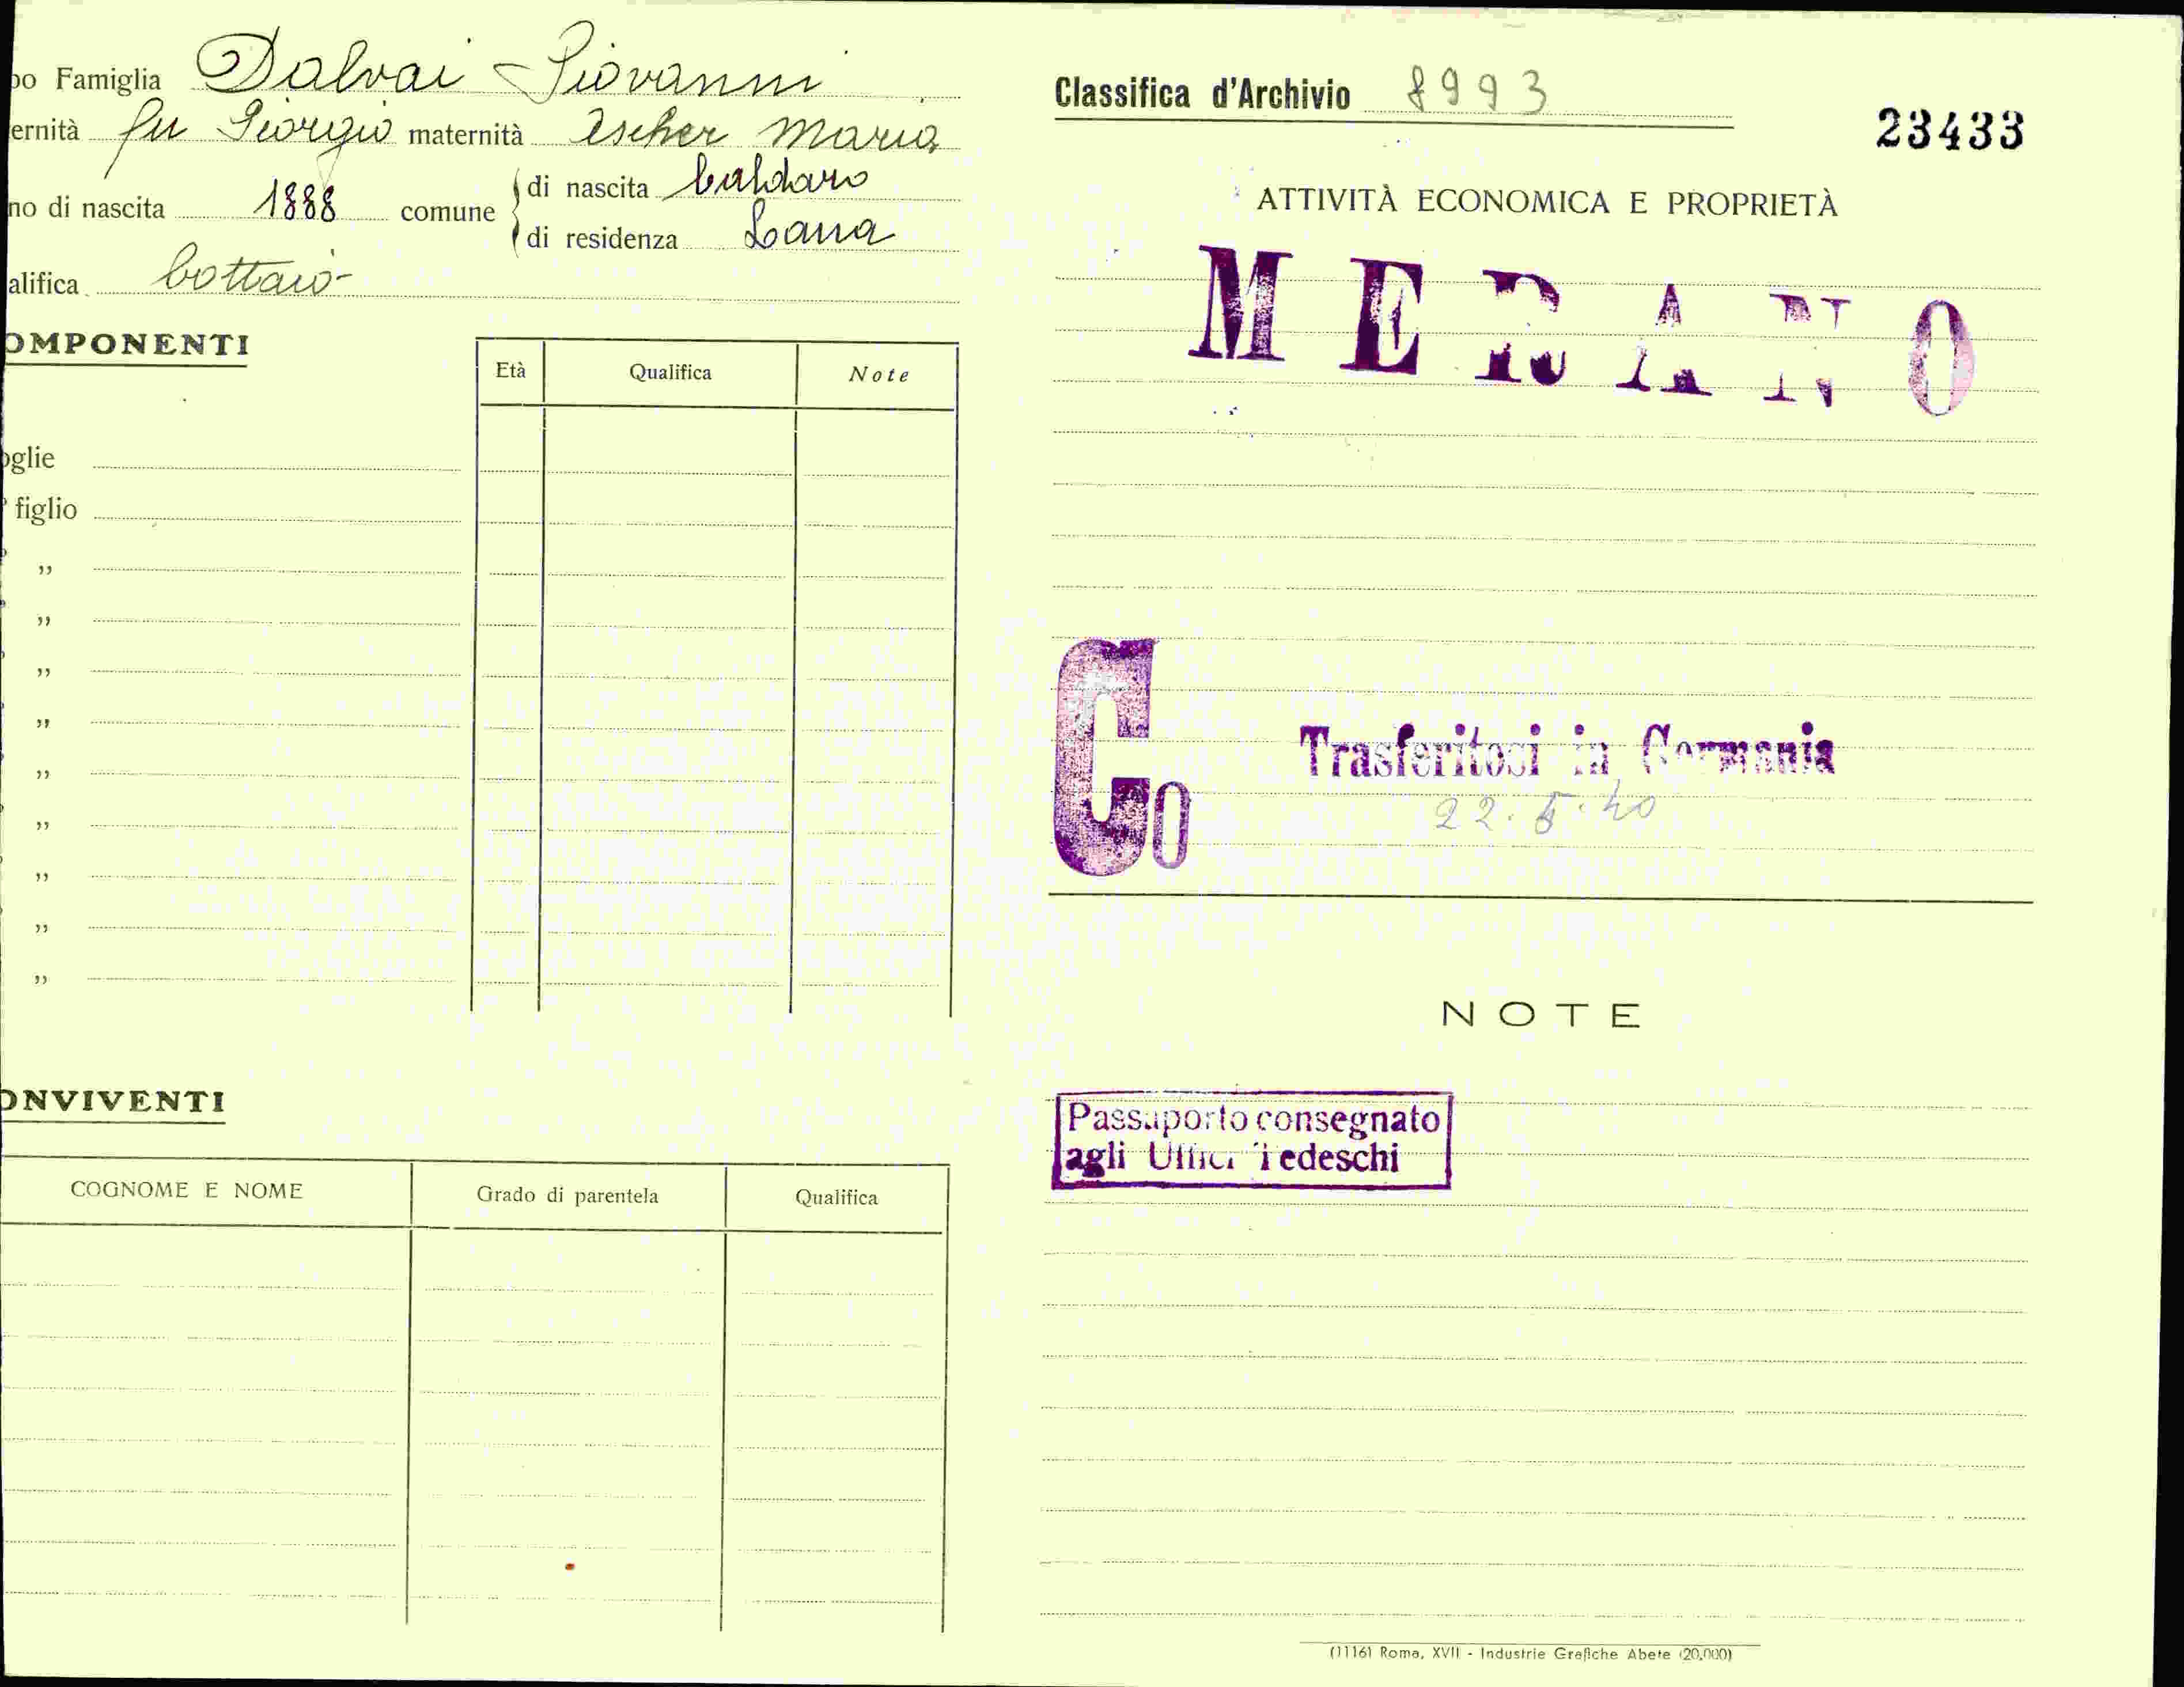 po Famiglia Dalvai Giovanni
ernità fu Giorgio maternità Escher Maria
no di nascita 1888 comune di nascita Caldaro
di residenza Lana
alifica bottaio
OMPONENTI
Età Qualifica Note
oglie
figlio
"
"
"
"
"
"
"
"
"
ONVIVENTI
COGNOME E NOME Grado di parentela Qualifica
Classifica d'Archivio 8993
23433
ATTIVITÀ ECONOMICA E PROPRIETÀ
MERANO
Co
Trasferitosi in Germania
22.5.40
NOTE
Passaporto consegnato
agli Uffici Tedeschi
(1116) Roma, XVII - Industrie Grafiche Abete (20.000)